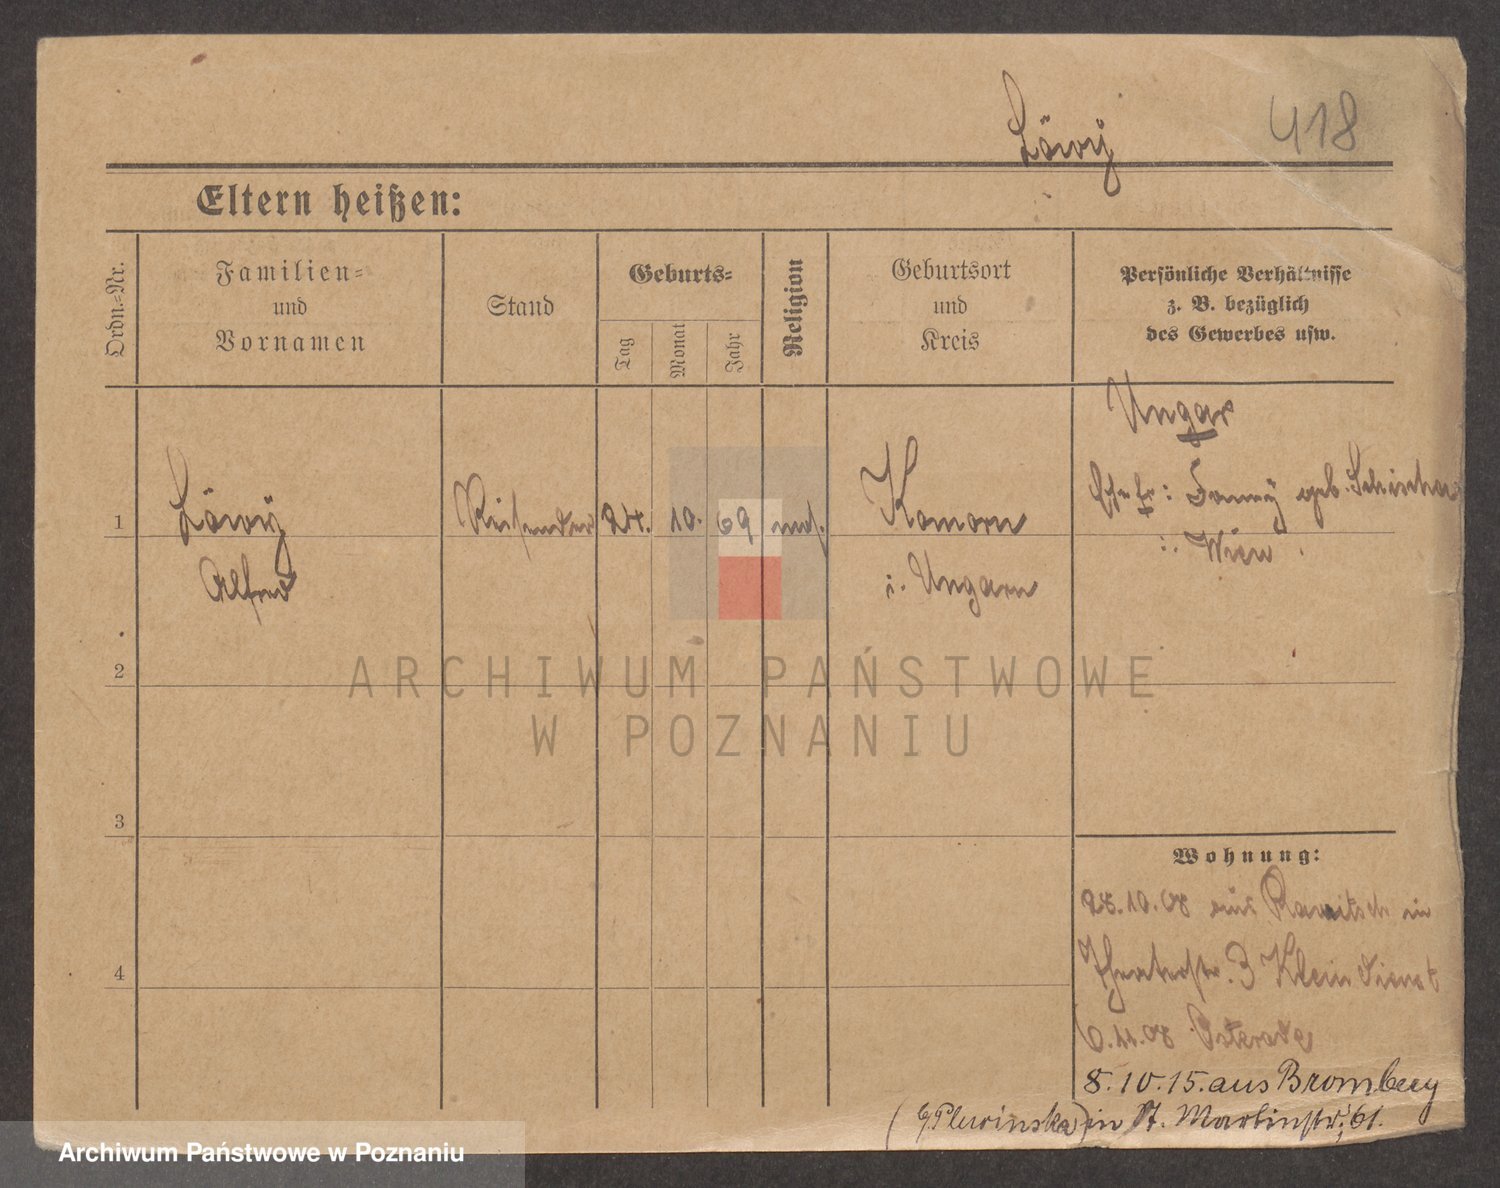 Löwÿ
418
Eltern heißen:
Ordn.-Nr.
Familien-
und
Vornamen
Stand
Geburts-
Tag
Monat
Jahr
Religion
Geburtsort
und
Kreis
Persönliche Verhältnisse
z. B. bezüglich
des Gewerbes usw.
Ungar
1
Löwÿ
Alfred
Reisender
24. 10. 69
mos.
Komorn
i. Ungarn
Ehefr: Fannÿ geb.
Wien
2
3
4
ARCHIWUM PAŃSTWOWE
W POZNANIU
Wohnung:
28.10.08 aus Rawitsch in
Theaterstr. 3 Kleindienst
6.11.08 Osterode
8.10.15. aus Bromberg
in St. Martinstr. 61.
Archiwum Państwowe w Poznaniu